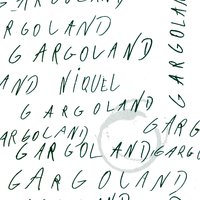 GARGOLAND
ARGOLAND
GARGOLAND
AND NIQUEL
GARGOLAND
ARGOLAND
GARGO
GARGOLAND
GARGO
GARGOLAND
GARGOLAND